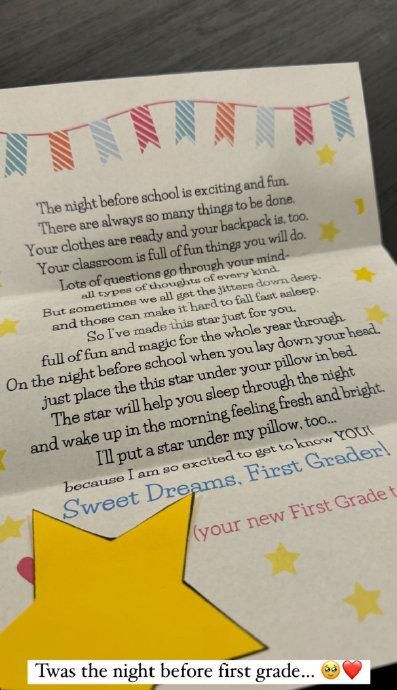 The night before school is exciting and fun.
There are always so many things to be done.
Your clothes are ready and your backpack is, too.
Your classroom is full of fun things you will do.
Lots of questions go through your mind-
all types of thoughts of every kind.
But sometimes we all get the jitters down deep,
and those can make it hard to fall fast asleep.
So I've made this star just for you,
full of fun and magic for the whole year through.
On the night before school when you lay down your head,
just place the this star under your pillow in bed.
The star will help you sleep through the night
and wake up in the morning feeling fresh and bright.
I'll put a star under my pillow, too...
because I am so excited to get to know YOU!
Sweet Dreams, First Grader!
(your new First Grade t
Twas the night before first grade... 🥹❤️